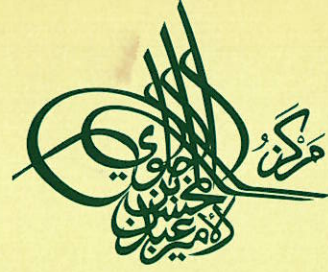 مَركَزُ
الأمير عبد المحسن بن جلوي